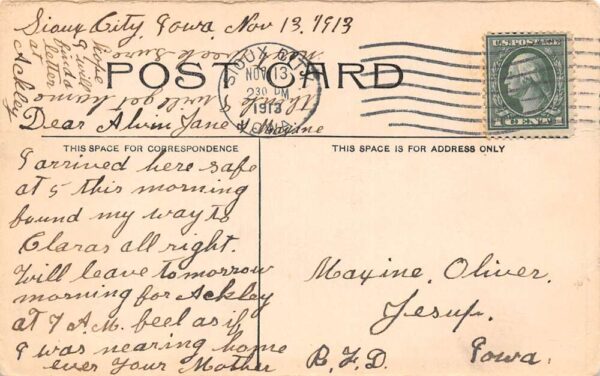 Sioux City, Iowa, Nov 13, 1913
POST CARD
SIOUX CITY
NOV 13
230 PM
1913
IOWA
U.S. POSTAGE
1 CENT 1
hope
I will
find a
letter
at
Ackley
I will get home
week sure
Dear Alvin Jane & Maxine
THIS SPACE FOR CORRESPONDENCE
THIS SPACE IS FOR ADDRESS ONLY
I arrived here safe
at 5 this morning
found my way to
Claras all right.
Will leave tomorrow
morning for Ackley
at 7 A.M. feel as if
I was nearing home
ever Your Mother
Maxine. Oliver.
Jesup.
R. F. D. Iowa.